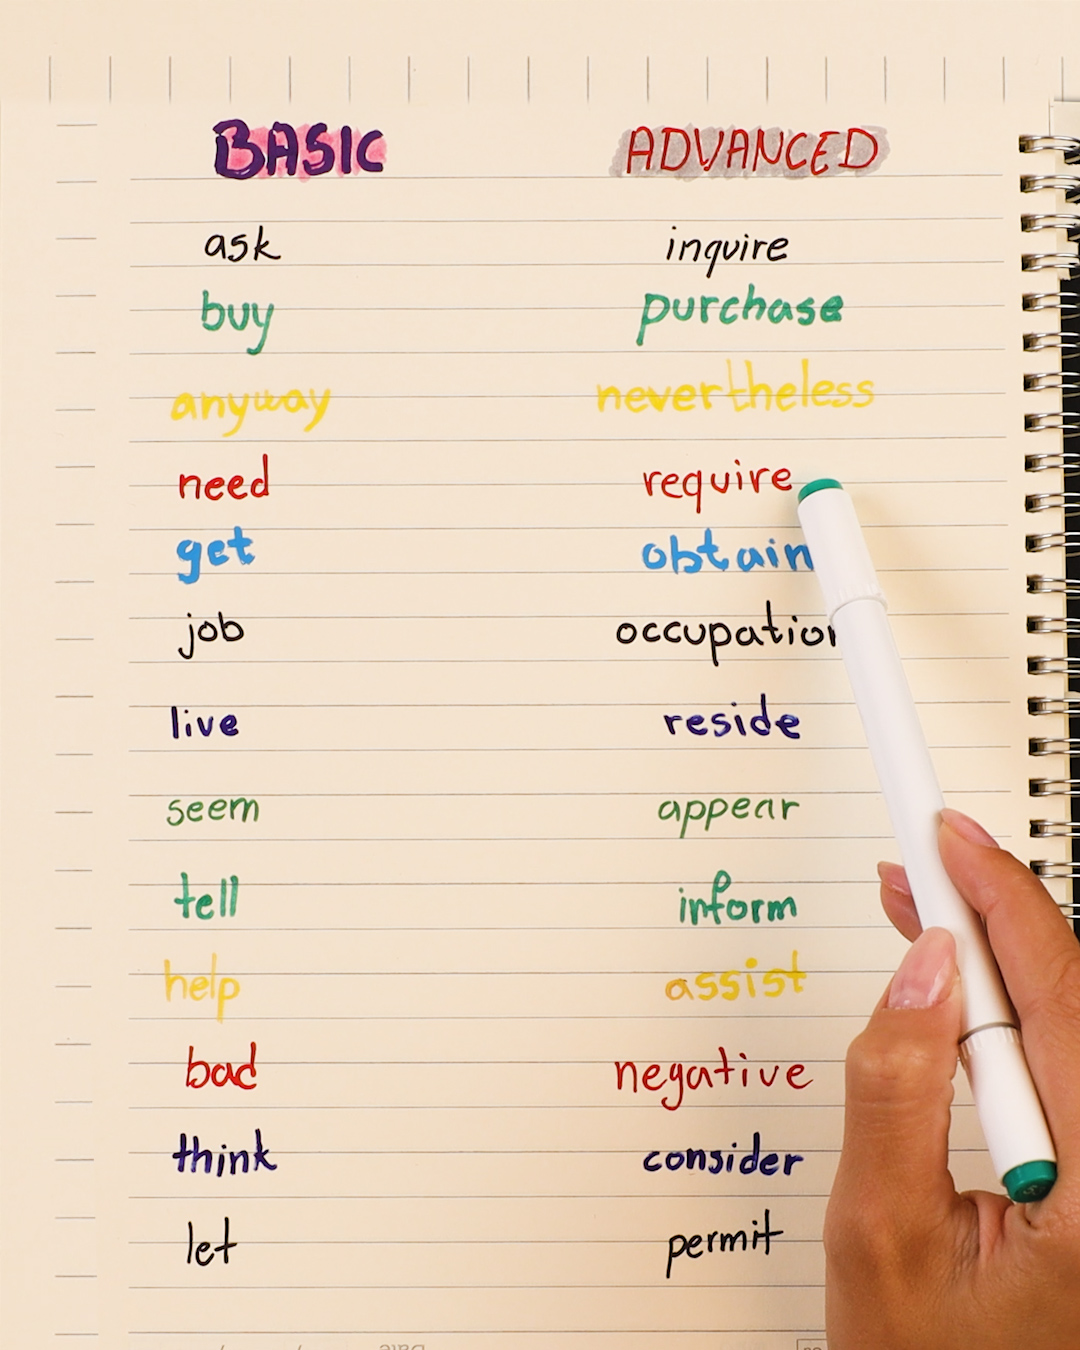 BASIC ADVANCED
ask inquire
buy purchase
anyway nevertheless
need require
get obtain
job occupation
live reside
seem appear
tell inform
help assist
bad negative
think consider
let permit